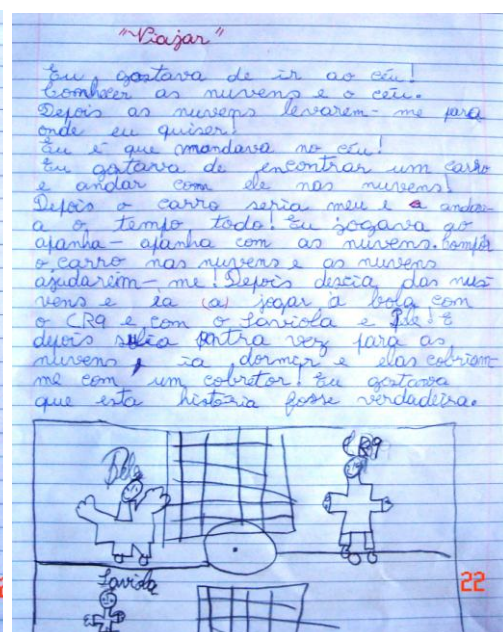 "Viajar"
Eu gostava de ir ao céu!
Conhecer as nuvens e o céu.
Depois as nuvens levarem-me para
onde eu quiser!
Eu é que mandava no céu!
Eu gostava de encontrar um carro
e andar com ele nas nuvens!
Depois o carro seria meu e a andav-
a o tempo todo! Eu jogava ao
apanha-apanha com as nuvens.
o carro nas nuvens e as nuvens
ajudarem-me! Depois descia das nu-
vens e ia (a) jogar à bola com
o CR9 e com o Saviola e Pele! E
depois subia outra vez para as
nuvens, ia dormir e elas cobriam-
me com um cobertor! Eu gostava
que esta história fosse verdadeira.
Pele
CR9
Saviola
22